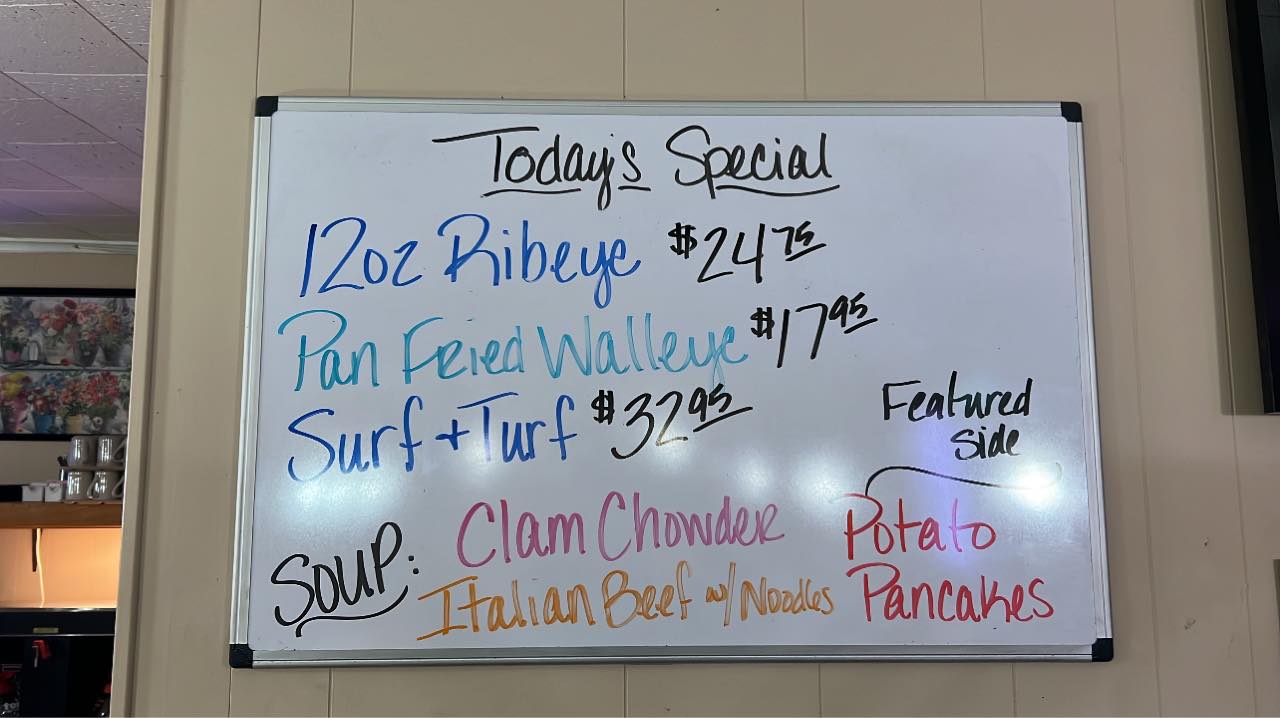 Today's Special
12oz Ribeye $24.75
Pan Fried Walleye $17.95
Surf + Turf $32.95
Featured
Side
Potato
Pancakes
Soup: Clam Chowder
Italian Beef w/ Noodles